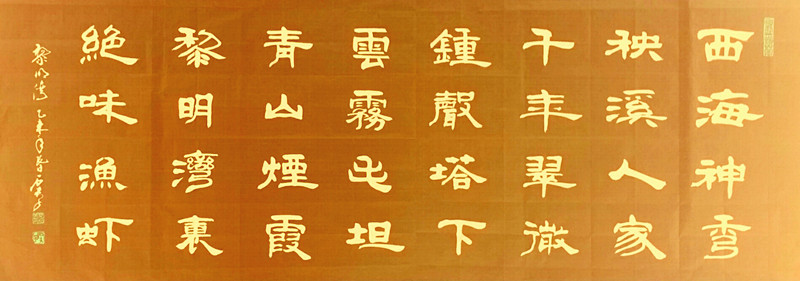 西海神秀
秧溪人家
千年翠微
鍾聲塔下
雲霧屯坦
青山煙霞
黎明灣裏
絶味漁虾
黎明灣 乙未年春